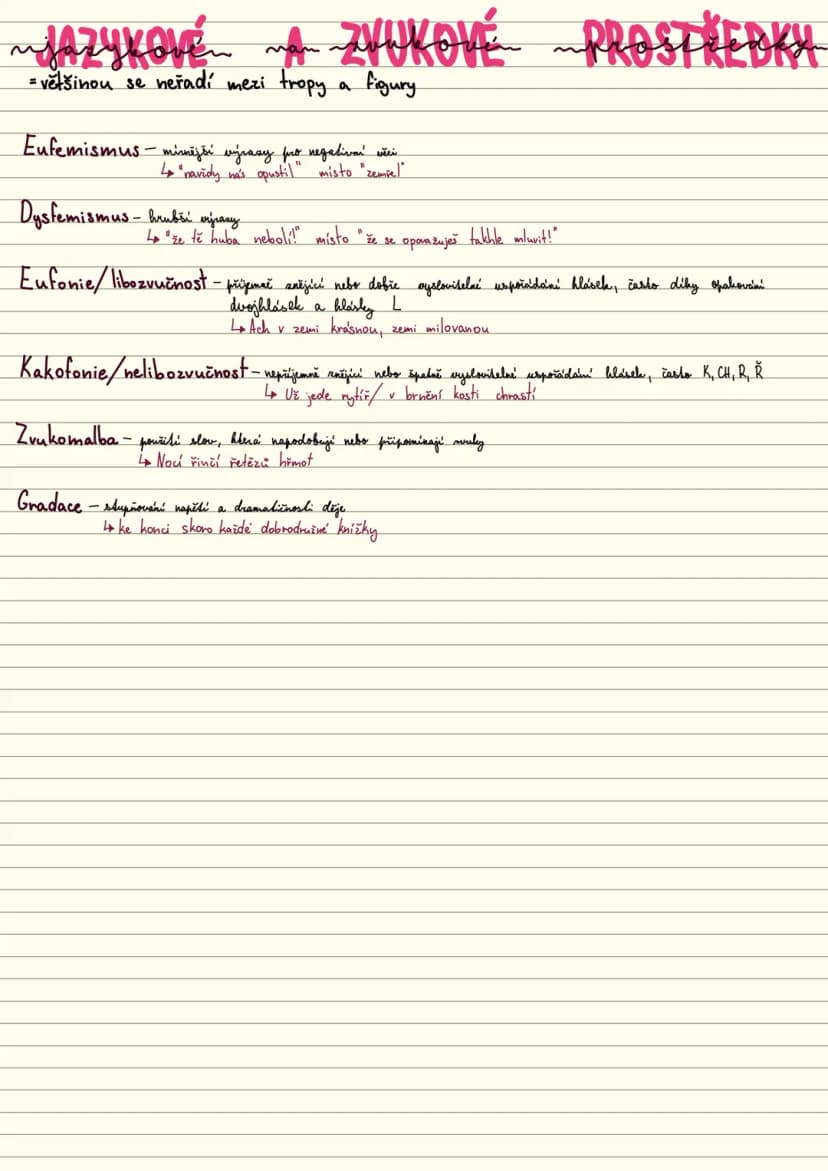 JAZYKOVÉ A ZVUKOVÉ PROSTŘEDKY
= většinou se neřadí mezi tropy a figury
Eufemismus – mírnější výrazy pro negativní věci
↳ "navždy nás opustil" místo "zemřel"
Dysfemismus – hrubší výrazy
↳ "že tě huba nebolí!" místo "že se opovažuješ takhle mluvit!"
Eufonie/libozvučnost – příjemně znějící nebo dobře vyslovitelné uspořádání hlásek, často díky opakování
dvojhlásek a hlásky L
↳ Ach v zemi krásnou, zemi milovanou
Kakofonie/nelibozvučnost – nepříjemně znějící nebo špatně vyslovitelné uspořádání hlásek, často K, CH, R, Ř
↳ Už jede rytíř/ v brnění kosti chrastí
Zvukomalba – použití slov, která napodobují nebo připomínají zvuky
↳ Nocí řinčí řetězů hřmot
Gradace – stupňování napětí a dramatičnosti děje
↳ ke konci skoro každé dobrodružné knížky